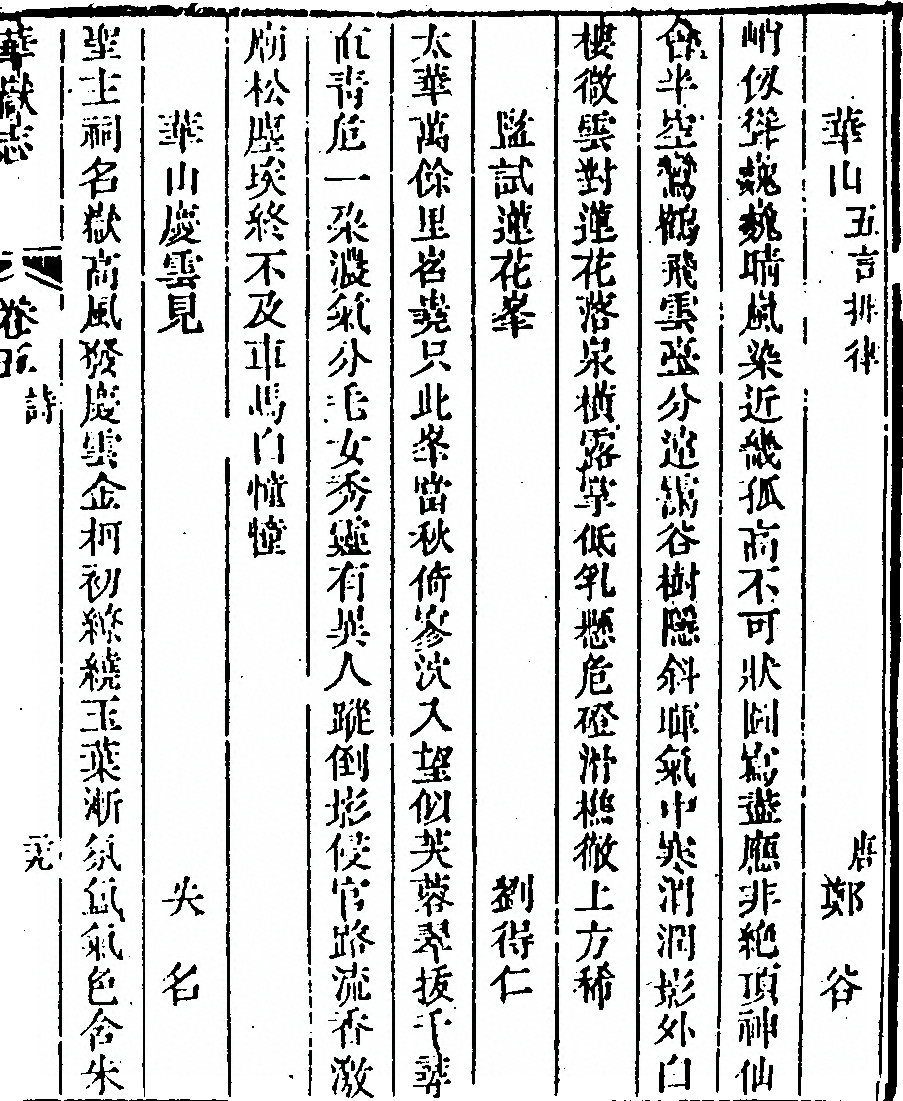 華山 五言排律 唐 鄭谷
峭仞聳巍巍晴嵐染近畿孤高不可狀圖寫盡應非絶頂神仙
會半空鸞鶴飛雲臺分遠靄谷樹隱斜暉氣中寒渭濶影外白
樓微雲對蓮花落泉橫露掌低乳懸危磴滑樵徹上方稀
監試蓮花峯 劉得仁
太華萬餘里岧嶤只此峯當秋倚寥泬入望似芙蓉翠拔千尋
直青危一朶濃氣分毛女秀靈有異人蹤倒影侵官路流香激
廟松塵埃終不及車馬白憧憧
華山慶雲見 失名
聖主祠名嶽高風發慶雲金柯初繚繞玉葉漸氛氳氣色含朱
華嶽志 卷五 詩